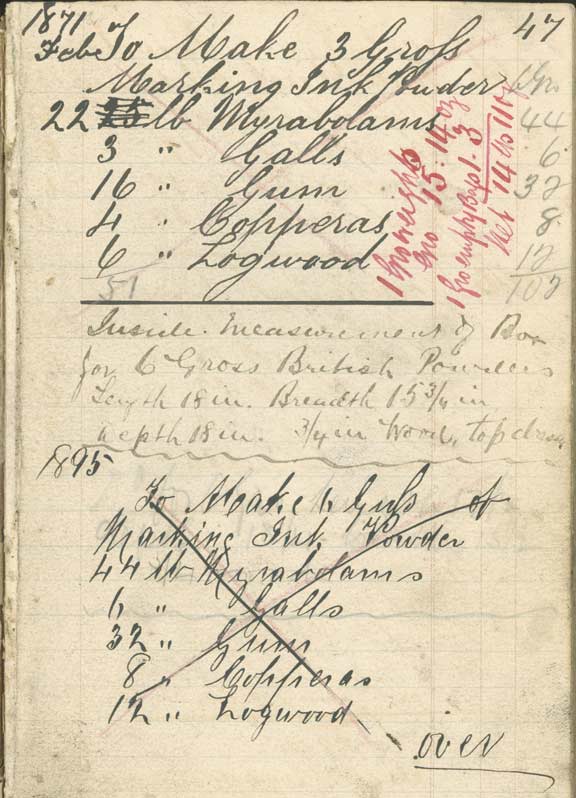 1871 47
Feb To Make 3 Gross of
Marking Ink Powder 6 Gro
22 lb Myrabolams 44
3 " Galls 6
16 " Gum 32
4 " Copperas 8
6 " Logwood 12
51 102
1 Gro weighs
Gro 15 . 14 oz
1 Gro empty Bags 1 . 3
Net 14 lbs 11 oz
Inside Measurement of Box
for 6 Gross British Powders
Length 18 in. Breadth 15 3/4 in
Depth 18 in. 3/4 in Wood, top
1895
To Make 6 Gross of
Marking Ink Powder
44 lb Myrabolams
6 " Galls
32 " Gum
8 " Copperas
12 " Logwood
over